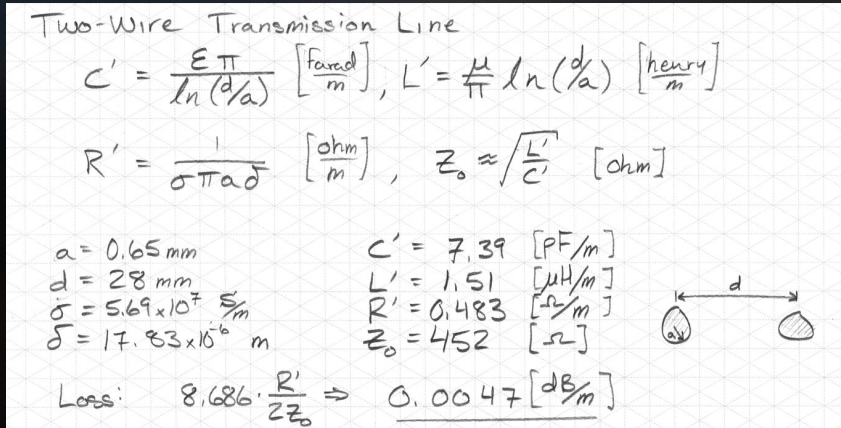 Two-Wire Transmission Line
C' = επ / ln(d/a) [farad/m], L' = μ/π ln(d/a) [henry/m]
R' = 1 / σπaδ [ohm/m], Z₀ ≈ √(L'/C') [ohm]
a = 0.65 mm
d = 28 mm
σ = 5.69 x 10⁷ S/m
δ = 17.83 x 10⁻⁶ m
C' = 7.39 [pF/m]
L' = 1.51 [μH/m]
R' = 0.483 [Ω/m]
Z₀ = 452 [Ω]
d
a
Loss: 8.686 · R'/2Z₀ ⇒ 0.0047 [dB/m]